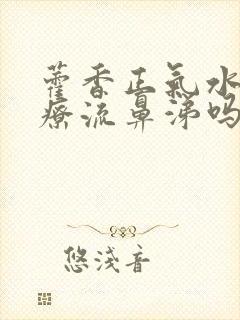 藿香正氣水
療流鼻涕吗
悠淺音